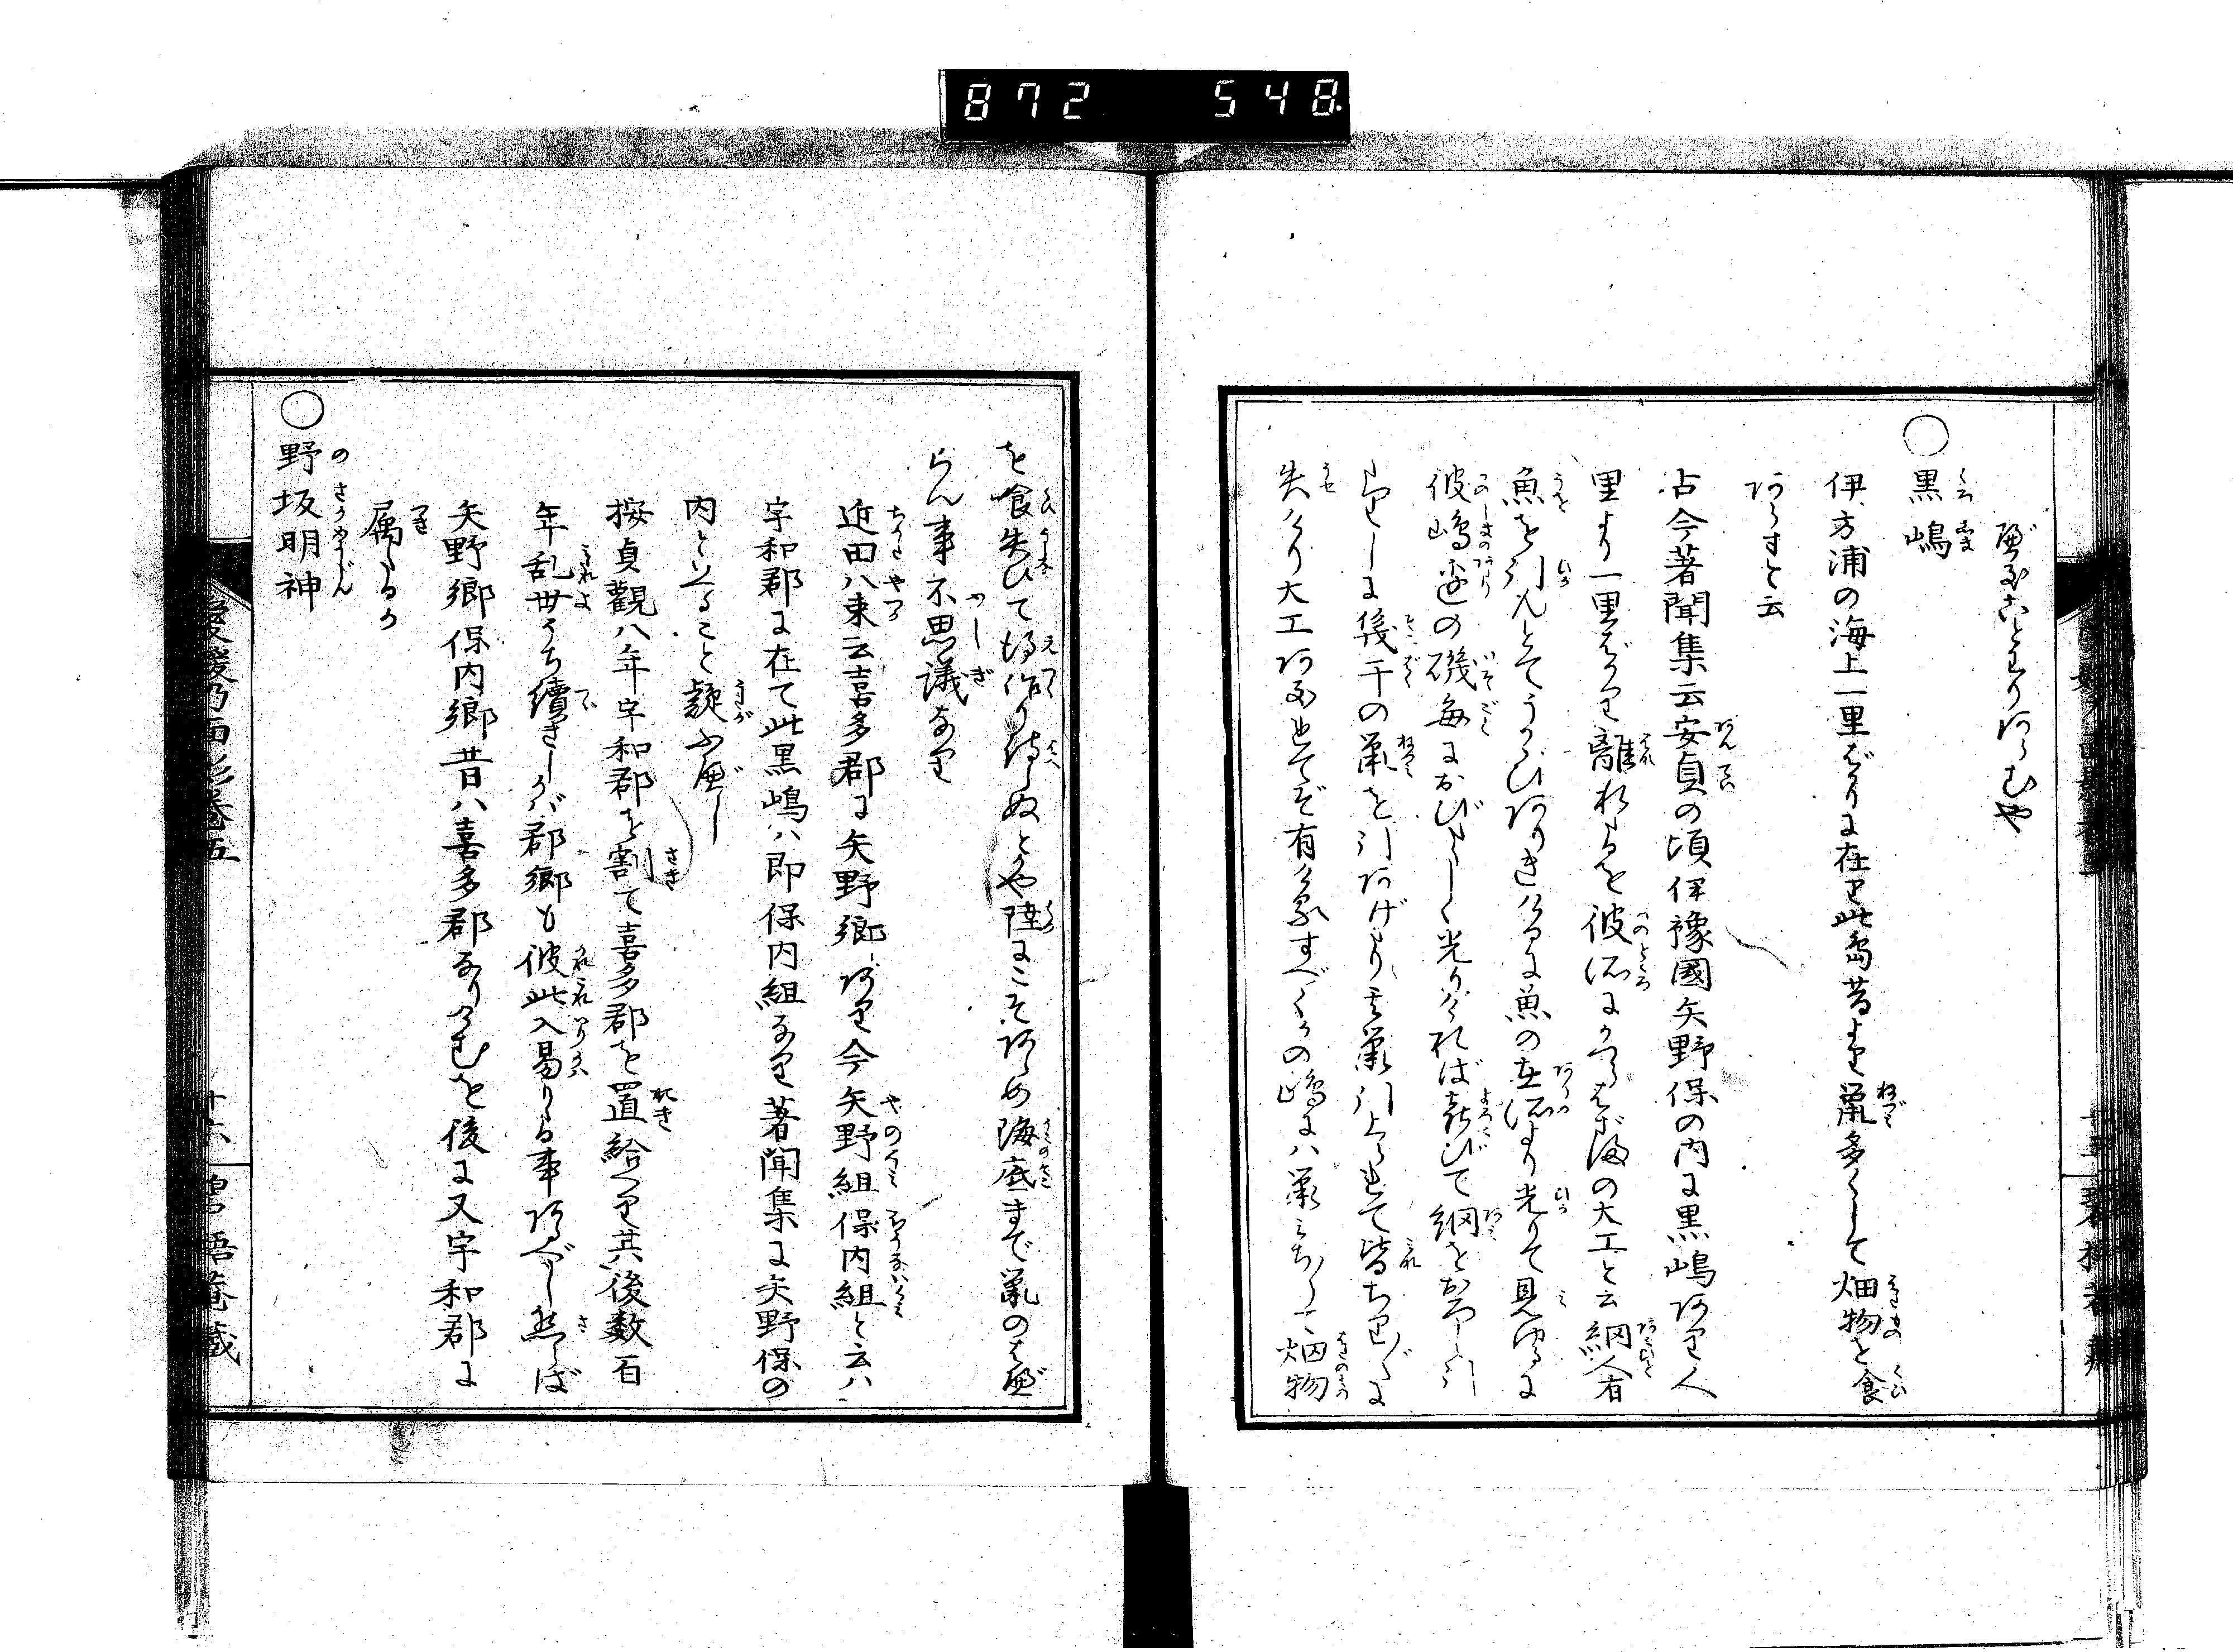 872 548
べきことなりあらむや
○黒嶋
伊方浦の海上一里ばかりに在り此島昔より鼠多くして畑物を食
あらすと云
古今著聞集云安貞の頃伊豫國矢野保の内に黒嶋あり人
里より一里ばかり離れたると彼所にかつらはざまの大工と云網人有
魚を引んとてうかゞひありきけるに魚の在所より光りて見ゆるに
彼嶋邊の磯毎におびたゞしく光りければ喜びて網をおろし引
たりしに幾千の鼠を引あげたり其鼠引上られて皆ちり〴〵に
失けり大工あきれてぞ有ける すべてかの嶋には鼠みち〳〵て畑物
を喰失ひて得作り侍らぬとかや陸にこそあらめ海底まで鼠の侍
らん事不思議なり
近田八束云喜多郡に矢野郷あり今矢野組保内組と云ハ
宇和郡に在て此黒嶋ハ即保内組なり著聞集に矢野保の
内といへること疑ふべし
按貞觀八年宇和郡を割て喜多郡を置給へり其後数百
年乱世うち續きしかバ郡郷も彼此入易りたる事あるべし然らば
矢野郷保内郷昔ハ喜多郡なりけむを後に又宇和郡に
属たるか
○野坂明神
愛媛乃面影巻五
十六